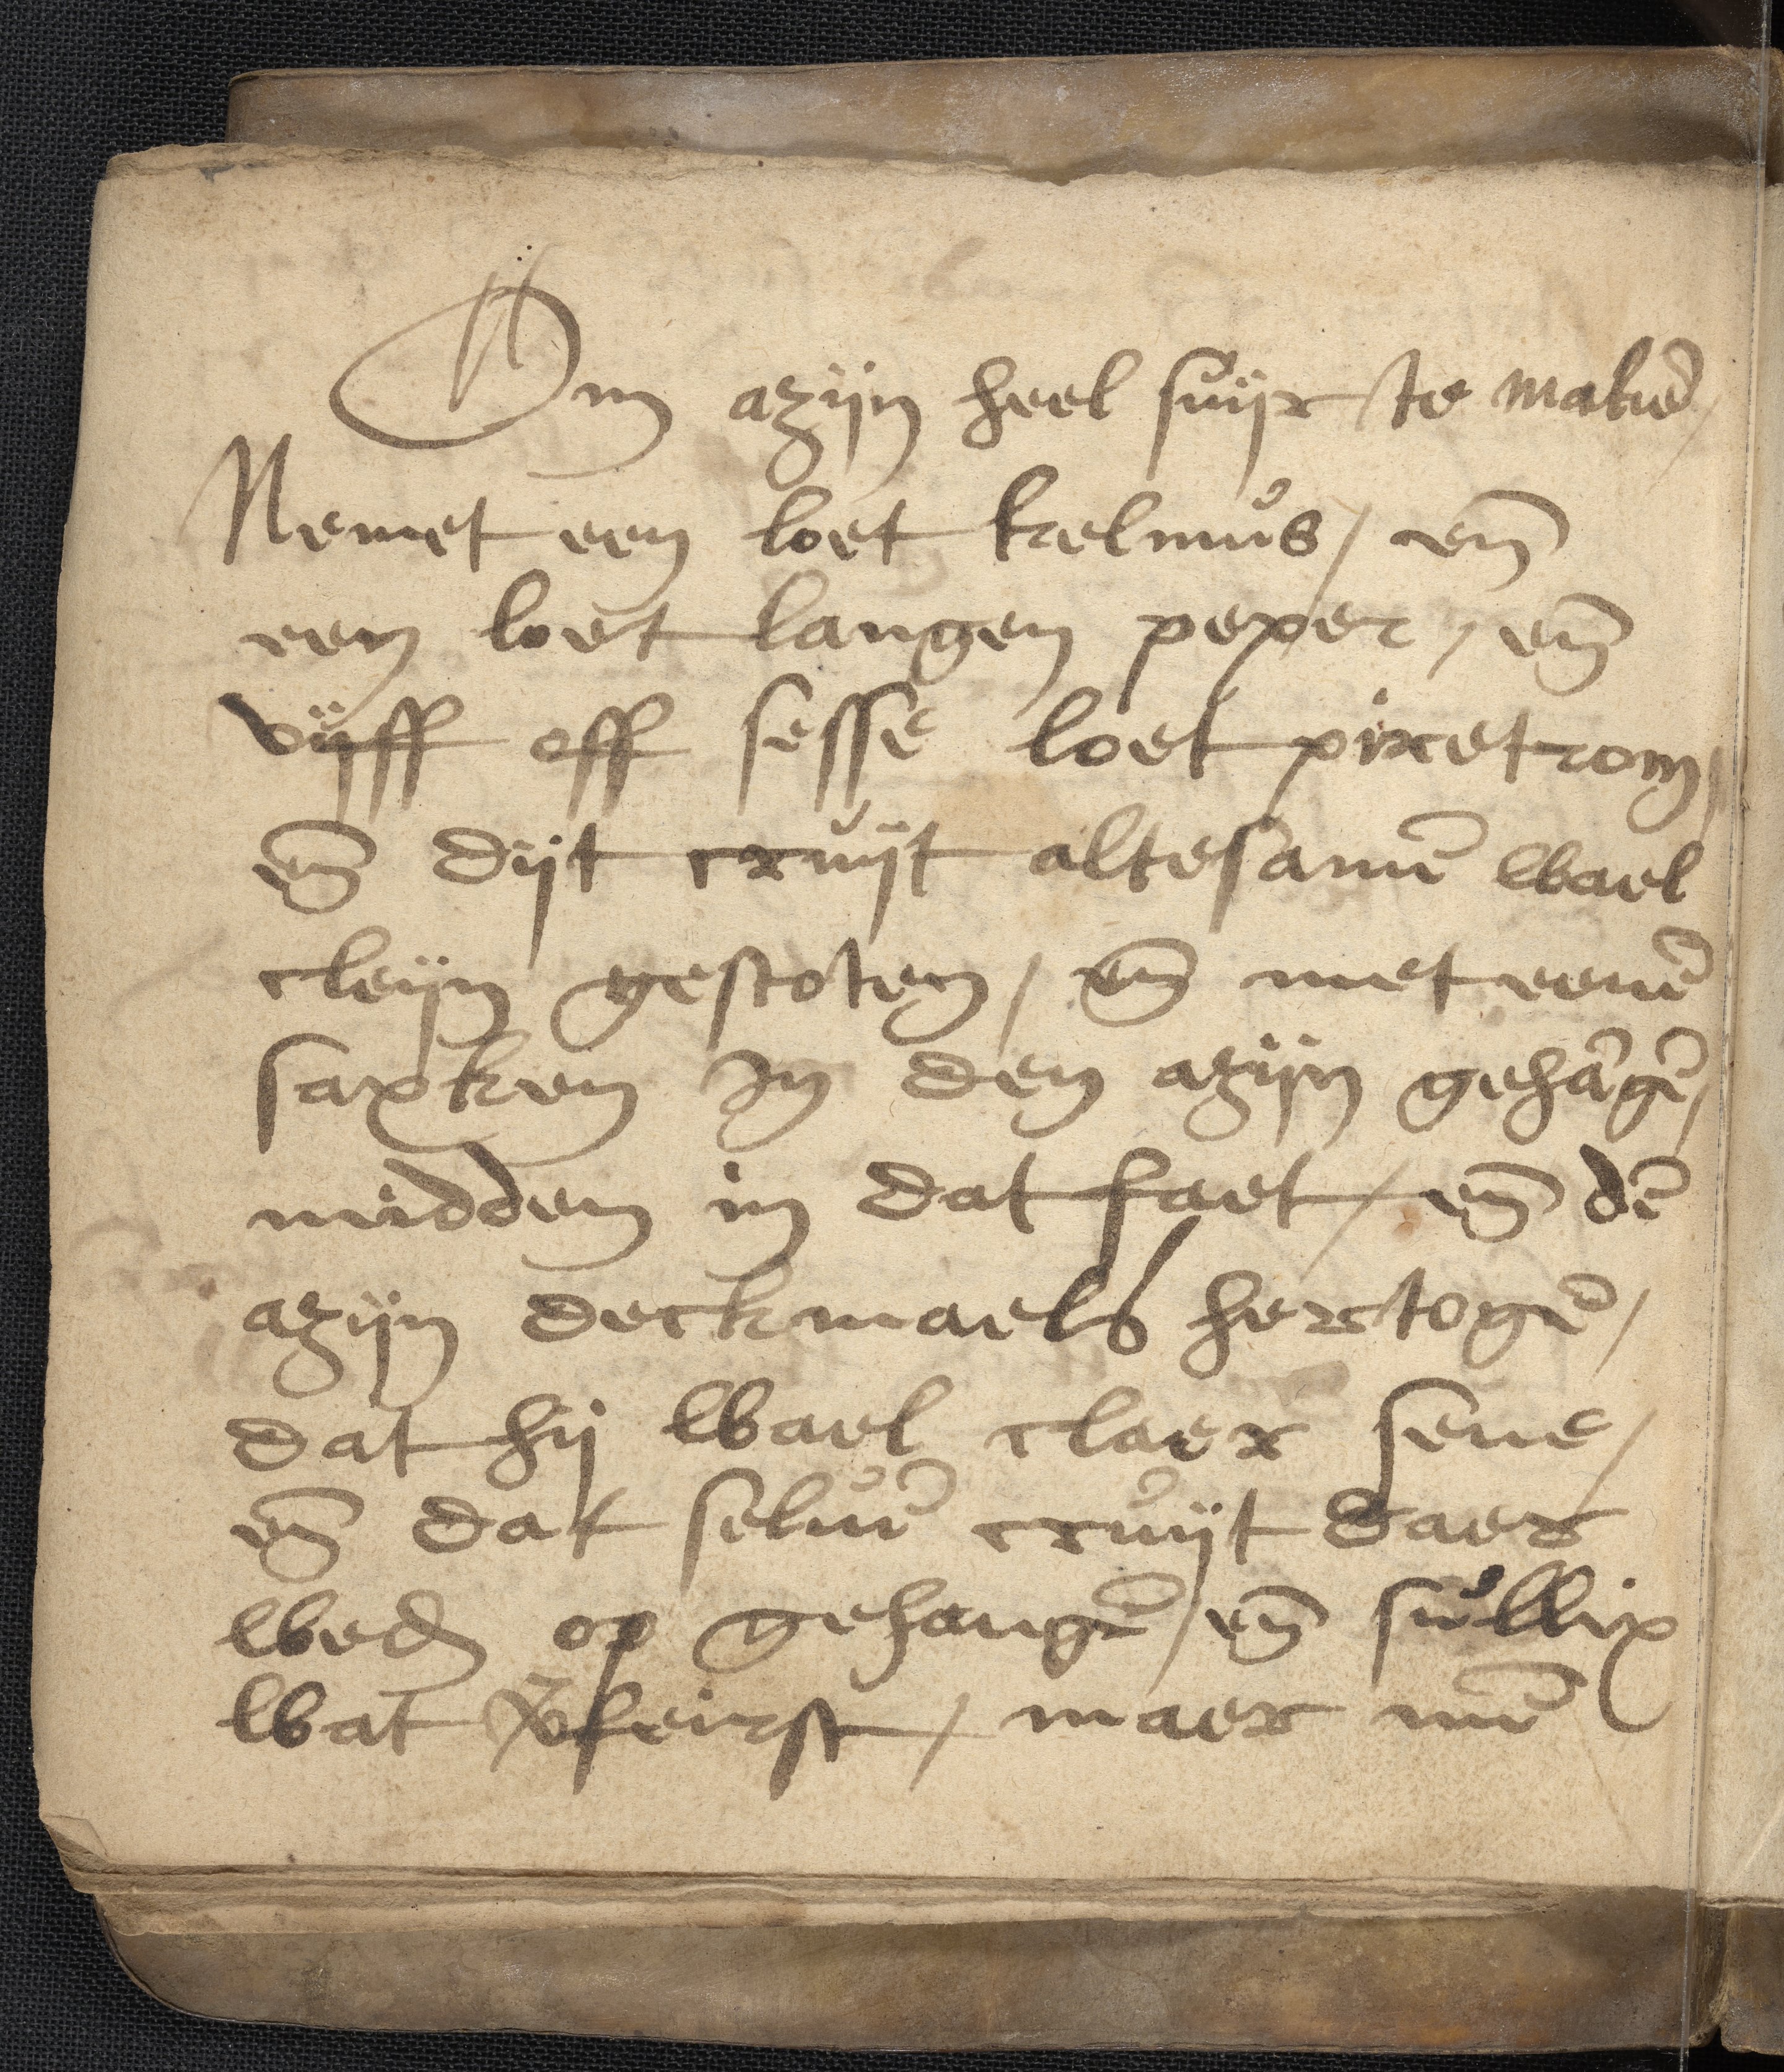 Om azijn heel suijr te maken̄ /
Nemet een loet kelmus / en̄
een loet langen peper / en̄
vijff off sesse loet piretrom /
en̄ dijt cruijt altesamē wael
cleijn gestoten / en̄ met eenē
saxken In den azijn gehāgē /
midden in dat faet / en̄ dē
azijn deckmaels hertogē /
dat hij wael claer sene /
en̄ dat seluē cruijt daer
wed op gehangē / en̄ sullix
wat v̄feirst / maer mē